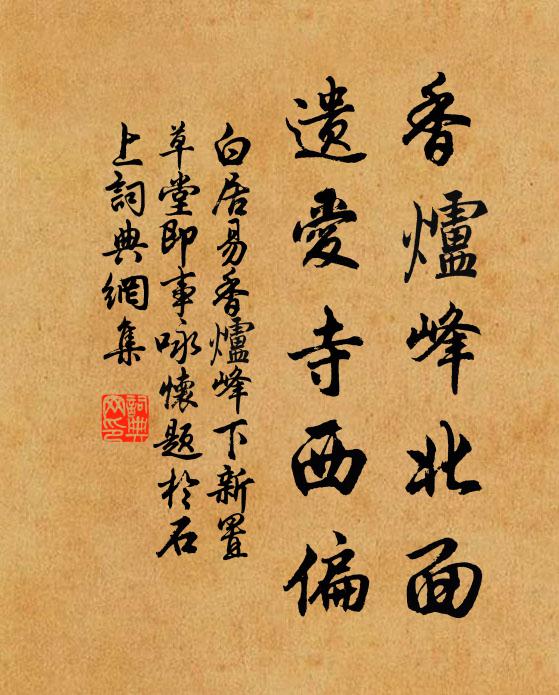 香爐峰北面
遺愛寺西偏
白居易香爐峰下新置
草堂即事咏懷題於石
上詞典網集
詞典
网印